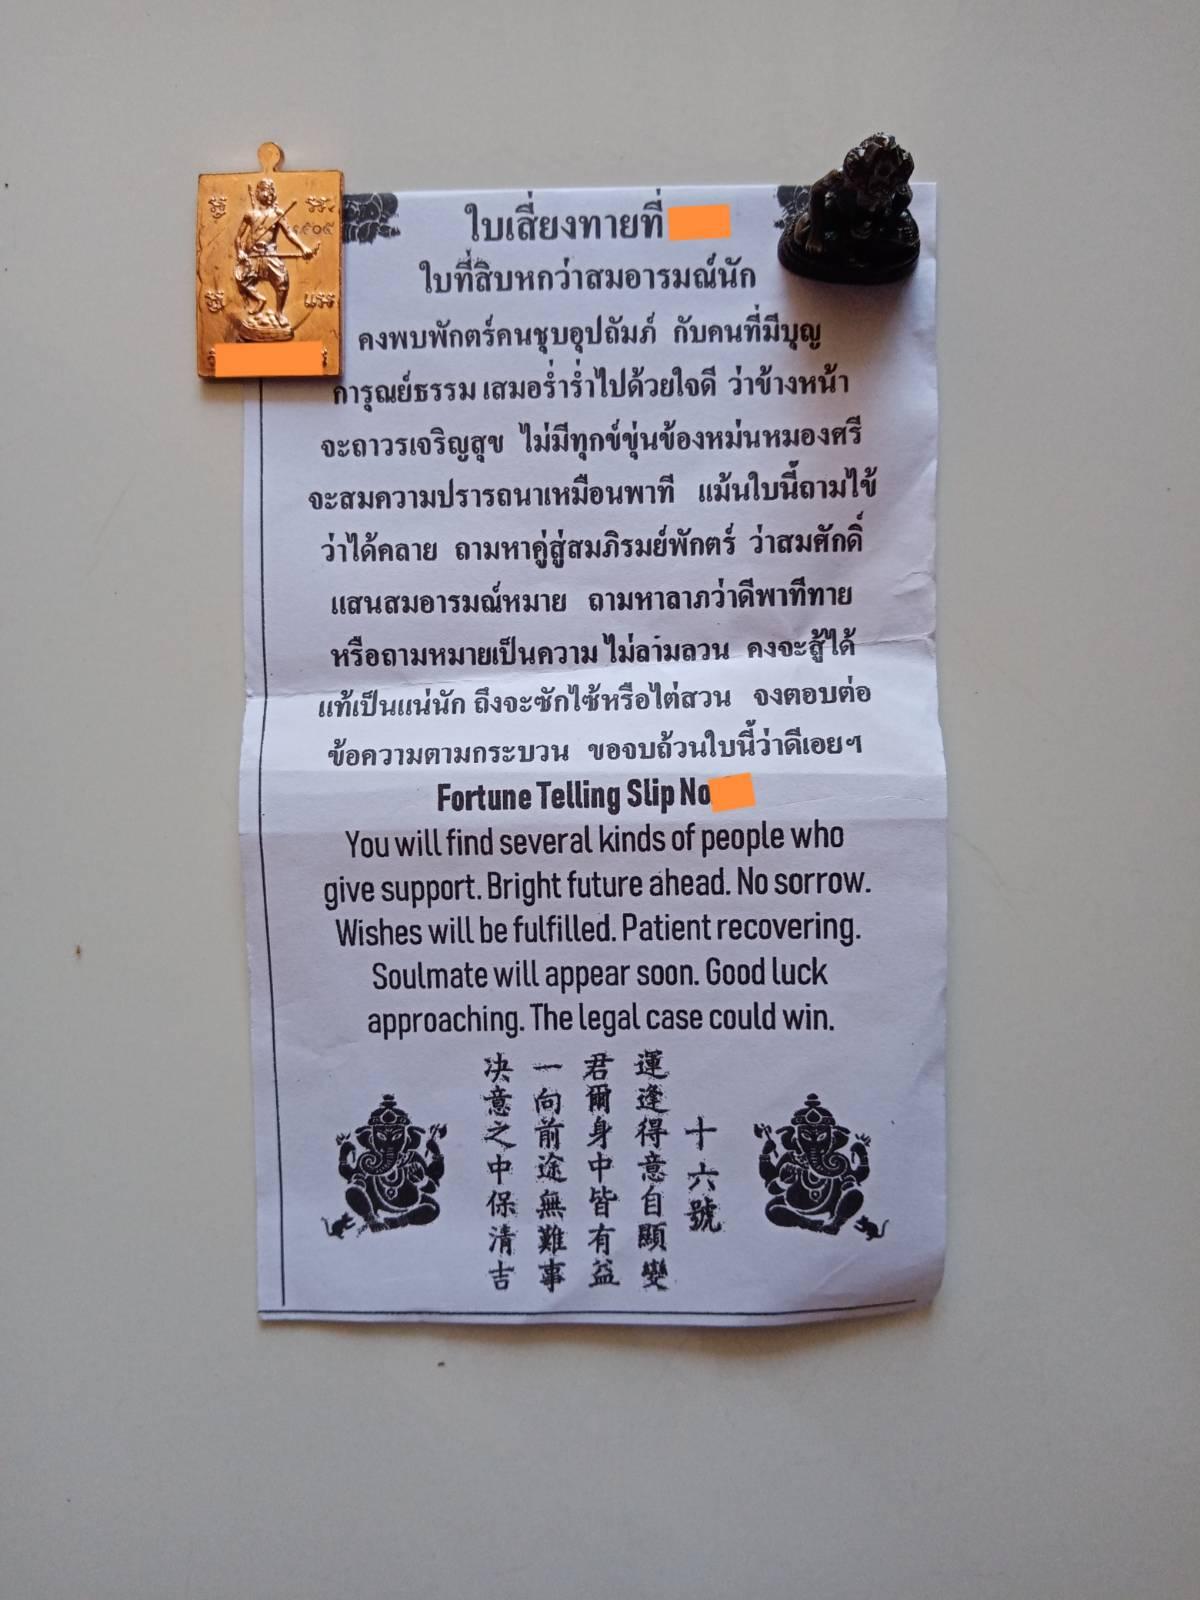 ใบเสี่ยงทายที่
ใบที่สิบหกว่าสมอารมณ์นัก
คงพบพักตร์คนชุบอุปถัมภ์ กับคนที่มีบุญ
การุณย์ธรรม เสมอร่ำร่ำไปด้วยใจดี ว่าข้างหน้า
จะถาวรเจริญสุข ไม่มีทุกข์ขุ่นข้องหม่นหมองศรี
จะสมความปรารถนาเหมือนพาที แม้นใบนี้ถามไข้
ว่าได้คลาย ถามหาคู่สู่สมภิรมย์พักตร์ ว่าสมศักดิ์
แสนสมอารมณ์หมาย ถามหาลาภว่าดีพาทีทาย
หรือถามหมายเป็นความ ไม่ลามลวน คงจะสู้ได้
แท้เป็นแน่นัก ถึงจะซักไซ้หรือไต่สวน จงตอบต่อ
ข้อความตามกระบวน ขอจบถ้วนใบนี้ว่าดีเอยฯ
Fortune Telling Slip No
You will find several kinds of people who
give support. Bright future ahead. No sorrow.
Wishes will be fulfilled. Patient recovering.
Soulmate will appear soon. Good luck
approaching. The legal case could win.
十六號
運逢得意自顯變
君爾身中皆有益
一向前途無難事
决意之中保清吉